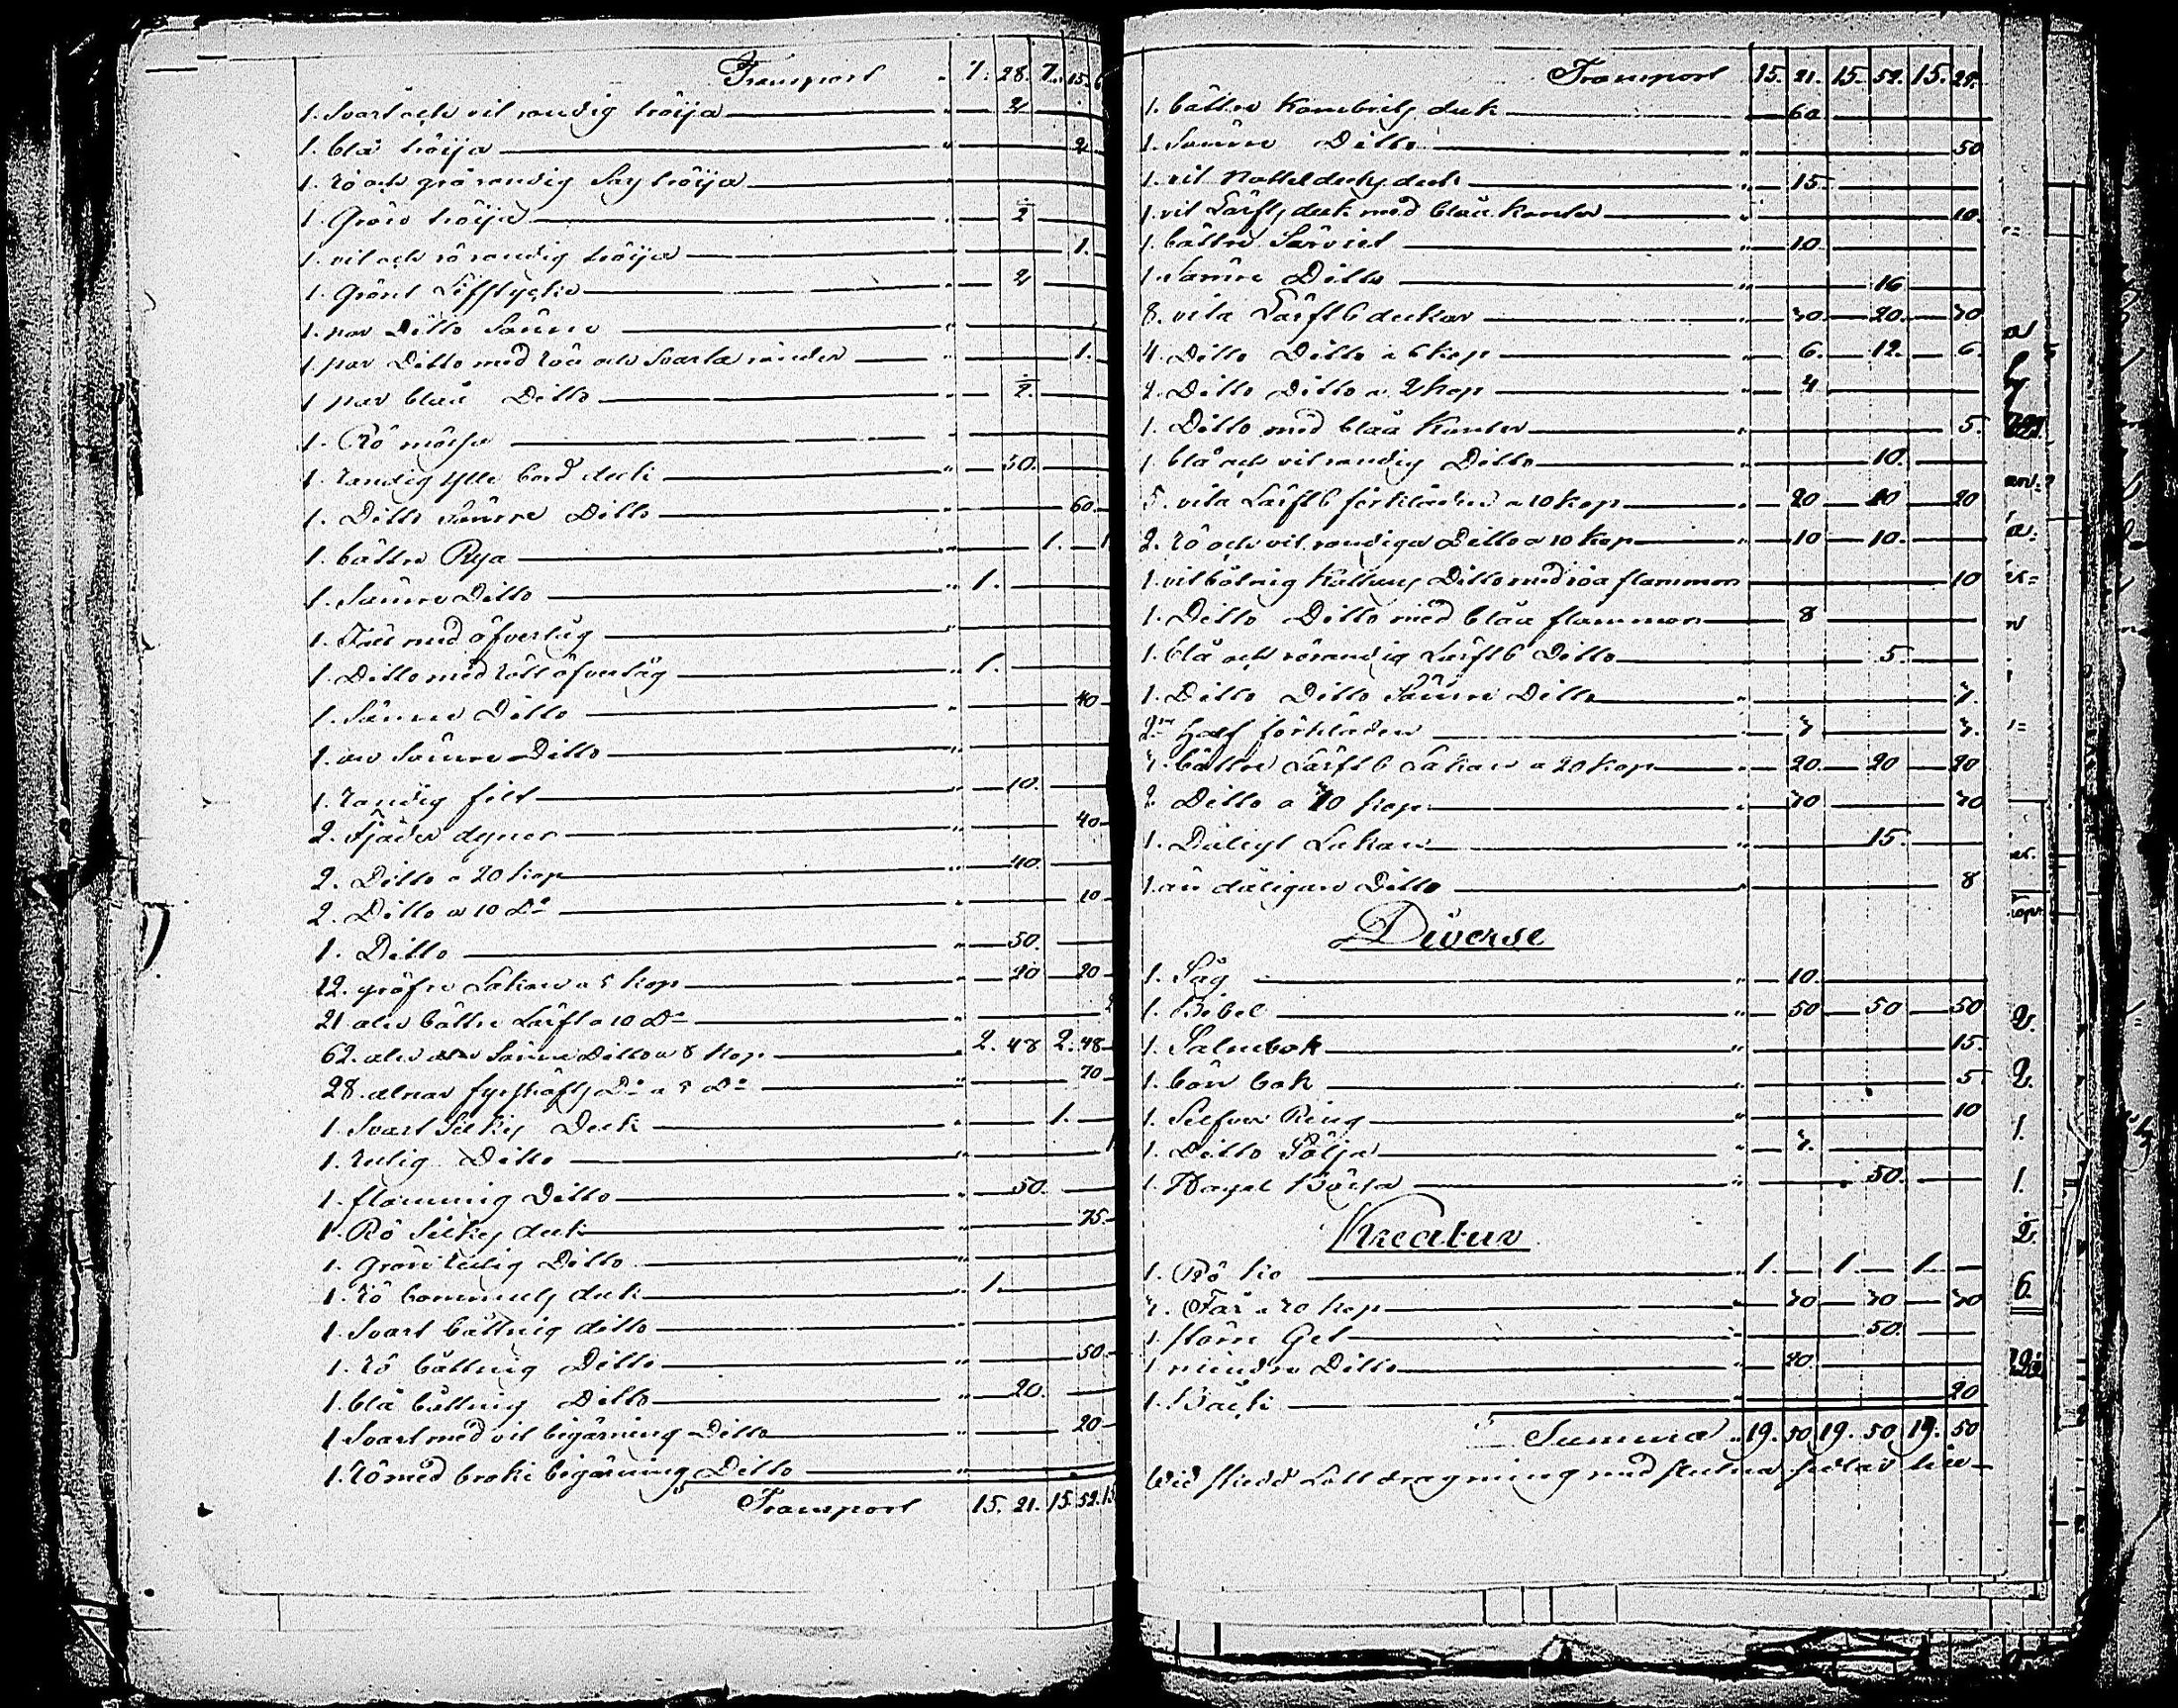 Transport „ 7. 28. 7. 15. 6
1. Svart och vit randig tröija „ 2
1. blå tröija „ 2
1. rö och grå randig Say tröija „
1. Grön tröija „ 2
1. vit och rö randig tröija „ 1.
1. Grönt Lifstycke „ 2
1. par Ditto Sämre „
1 par Ditto med röa och Svarta ränder „ 1.
1 par blåa Ditto „ 2.
1. Rö mössa „
1 randig ylle bord duk „ 50.
1. Ditto Sämre Ditto „ 60.
1. bättre Rya „ 1. 1
1. Sämre Ditto „ 1.
1. Fäll med öfvertüg „
1 Ditto med rött öfvertüg „ 1.
1. Sämre Ditto „ 40
1. än Sämre Ditto „
1. randig filt „ 10.
2. Fjäder dynor „ 40
2. Ditto a 20 kop „ 40.
2. Ditto a 10 Do „ 10
1. Ditto „ 50.
12. gröfre Lakan a 5 kop „ 20 20
21 aln bättre Lärft a 10 Do „ 2
62. aln Sämre Ditto a 8 kop „ 2. 48 2. 48
28. alnar fyrskäfts Do a 5 Do „ 70
1. Svart Silkes Duk „ 1.
1. rutig Ditto „ 1
1. flammig Ditto „ 50.
1. Rö Silkes duk „ 75.
1. grön rutig Ditto „
1. rö bommuls duk „ 1.
1. Svart bättnig ditto „
1. rö bättnig Ditto „ 50
1. blå bättnig Ditto „ 20.
1 Svart med vit begärning Ditto „ 20
1. rö med broki begärning Ditto „
Transport 15. 21. 15. 52. 15
Transport 15. 21. 15. 52. 15. 29.
1. bättre Kambrits duk 60
1. Sämre Ditto „ 50
1. vit Nattelducks duk „ 15.
1. vit Lärfts duk med blåa kanter „ 10.
1. bättre Särviet „ 10
1. Sämre Ditto „ 16
8. vita Lärfts dukar „ 30 20. 30
4. Ditto Ditto a 6 kop „ 6. 12. 6.
2. Ditto Ditto a 2 kop „ 4
1. Ditto med blåa kanter „ 5.
1 blå och vit randig Ditto „ 10.
5. vita Lärfts förkläden a 10 kop „ 20 10 20
2. rö och vit randiga Ditto a 10 kop „ 10 10.
1. vit bötnig Kattuns Ditto med röa flammor 10
1. Ditto Ditto med blåa flammor 8
1. blå och rö randig Lärfts Ditto 5.
1. Ditto Ditto Sämre Ditto „ 3.
2ne Half förkläden „ 3 3.
3. bättre Lärfts Lakan a 20 kop „ 20 20 20
2 Ditto a 30 kop „ 30 30
1. Dåligt Lakan „ 15.
1. än dåligare Ditto „ 8
Diverse
1. Såg „ 10.
1. Bibel „ 50 50 50
1. Salmbok „ 15.
1. bön bok „ 5
1. Silfver Ring „ 10
1. Ditto Sölja „ 3.
1. Hagel Bössa „ 50.
Kreatur
1. Rö ko „ 1. 1. 1.
3. Får a 30 kop „ 30 30 30
1 större Get „ 50.
1 mindre Ditto „ 40.
1. Bäck „ 20
Summa „ 19. 50 19. 50 19. 50
Wid skedd Lottdragning med slutna sedlar